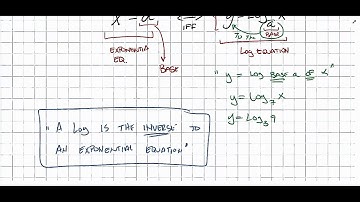 x = a
IFF
y = Log x
TO THE a
BASE
EXPONENTIAL
EQ.
BASE
Log EQUATION
"y = Log BASE a OF x"
y = Log₇ x
y = Log₅ 9
"A Log IS THE INVERSE TO
AN EXPONENTIAL EQUATION"